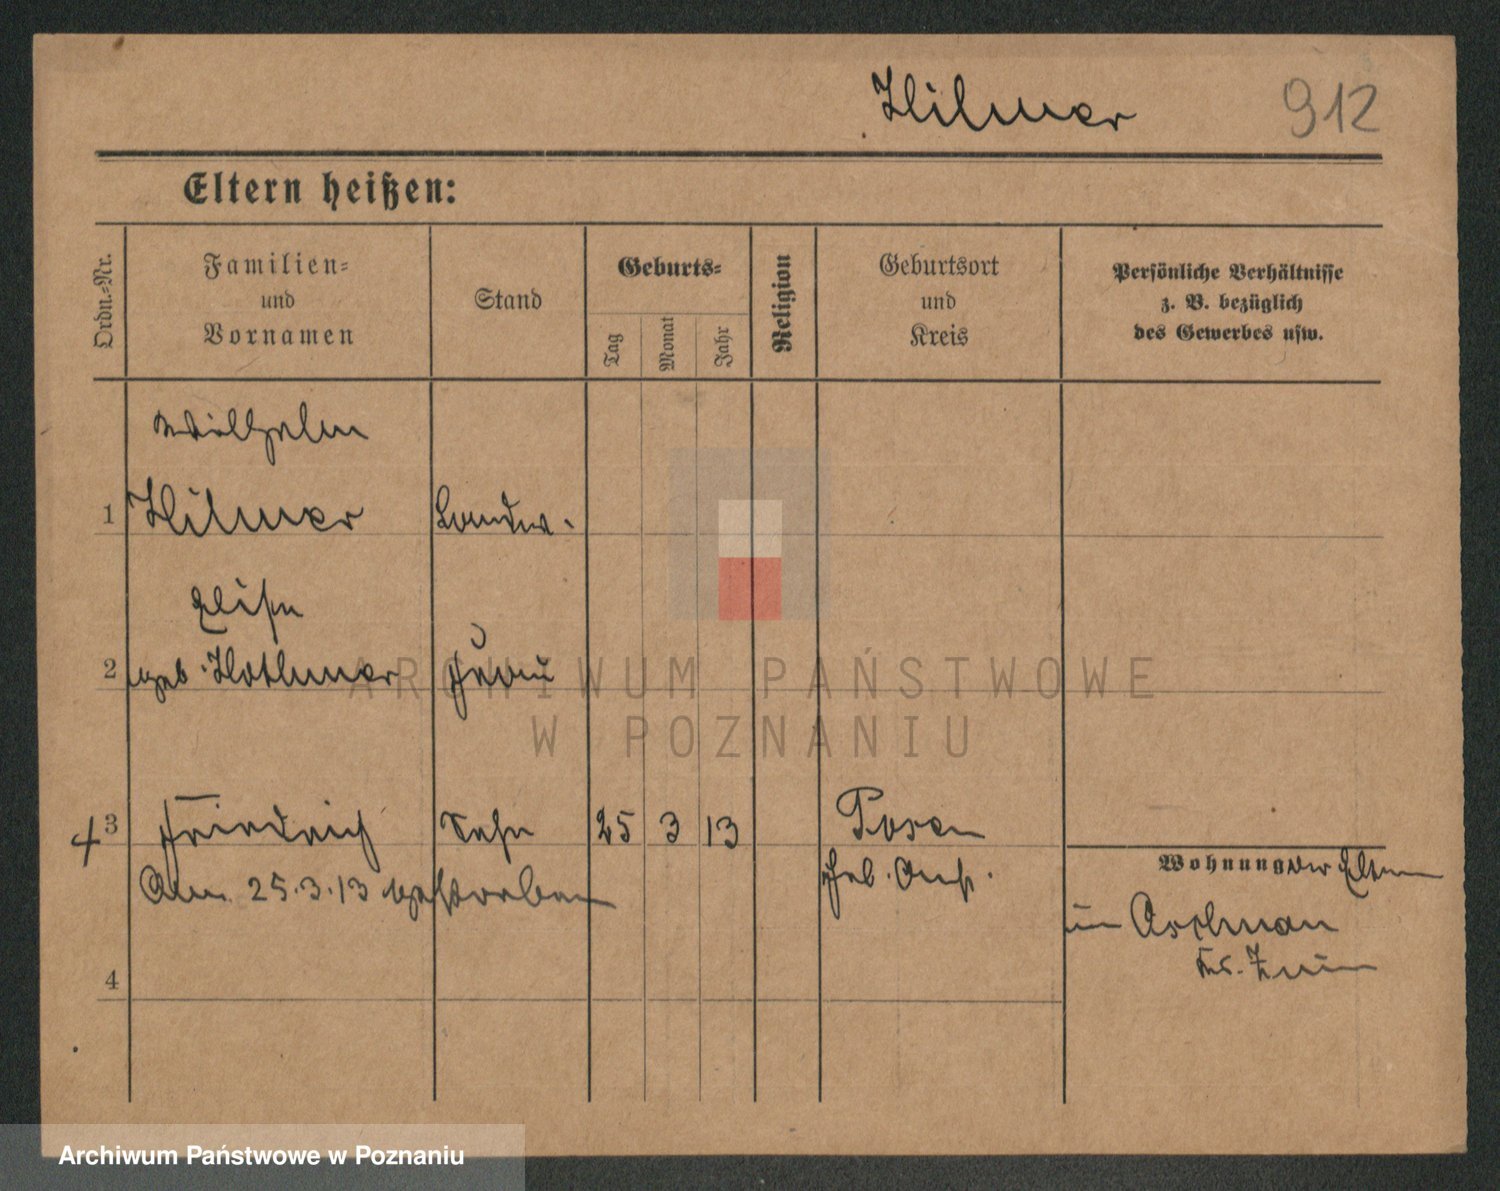 Hilmer 912
Eltern heißen:
Ordn.-Nr.
Familien-
und
Vornamen
Stand
Geburts-
Tag
Monat
Jahr
Religion
Geburtsort
und
Kreis
Persönliche Verhältnisse
z. B. bezüglich
des Gewerbes usw.
Wilhelm
1 Hilmer Landw.
Elise
2 geb. Frau
3 Friedrich Sohn 25 3 13 Posen
Am 25.3.13 gestorben
Geb. Anst.
Wohnung der Eltern
in
Kr. Znin
4
ARCHIWUM PAŃSTWOWE
W POZNANIU
Archiwum Państwowe w Poznaniu